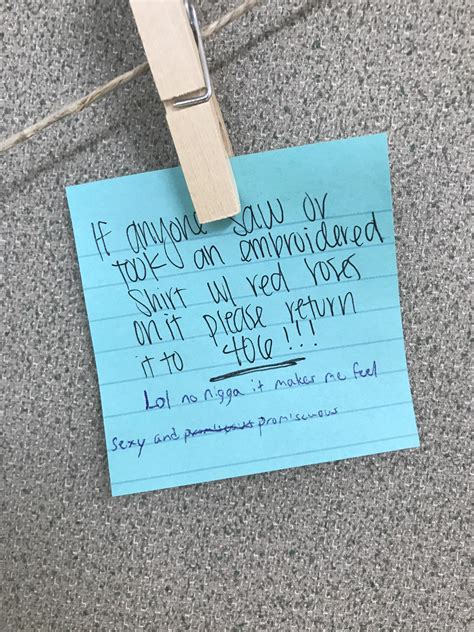 If anyone saw or
took an embroidered
shirt w/ red roses
on it please return
it to 406!!!
Lol no nigga it makes me feel
sexy and promiscuous